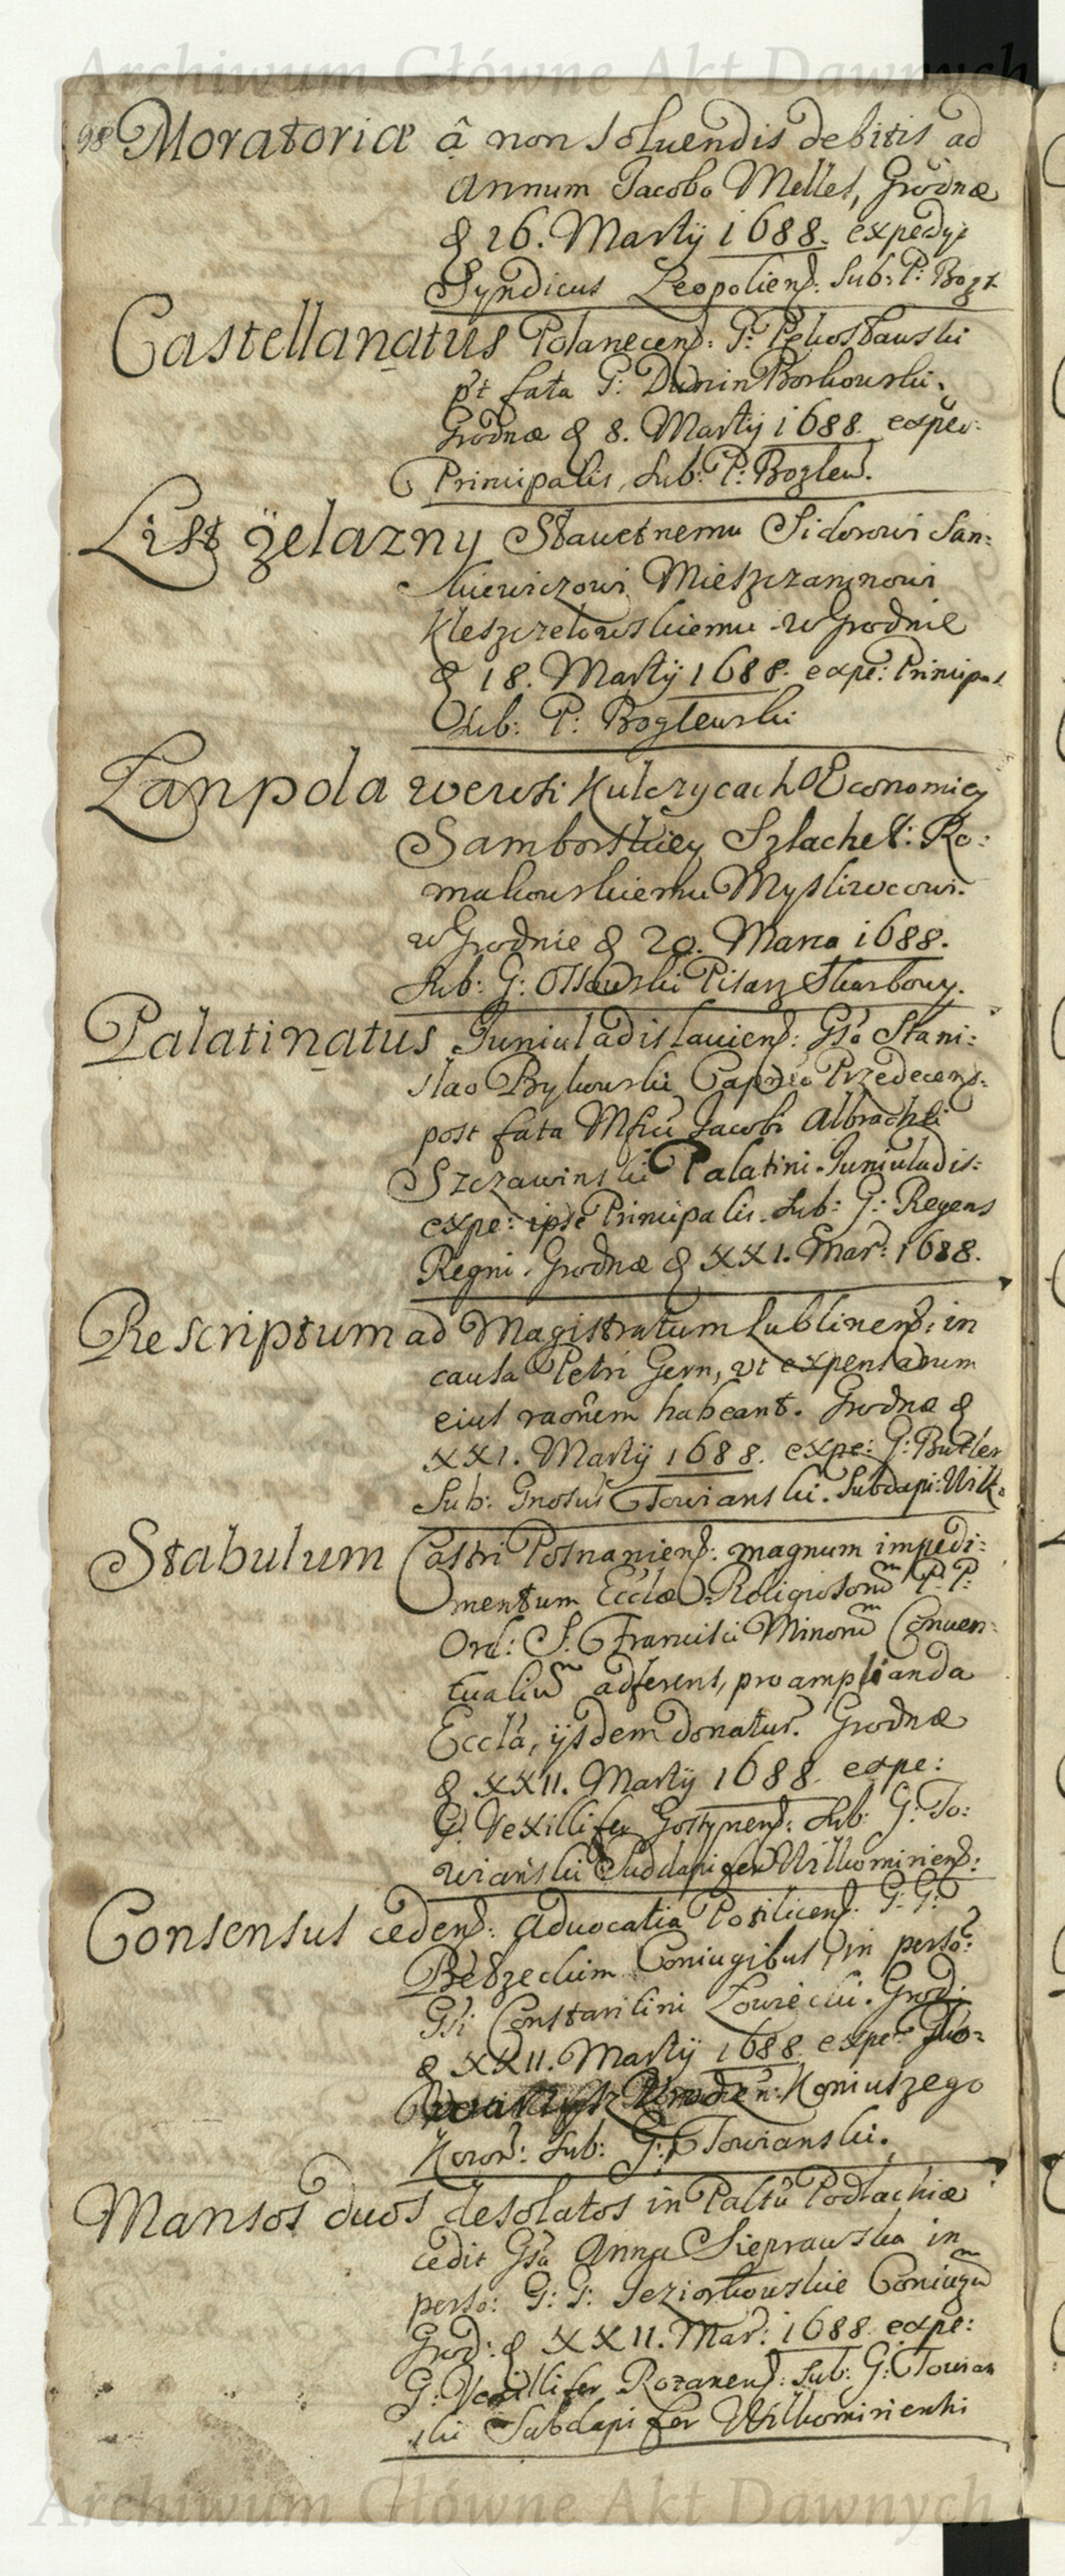 Archiwum Główne Akt Dawnych
98 Moratoriæ â non soluendis debitis ad
Annum Jacobo Melles, Grodnæ
d 26. Martij 1688. expedijt
Syndicus Leopoliens: Sub: P: Bogl
Castellanatus Polanecens: G: Pekosławski
pt fata G: Dunin Borkowski.
Grodnæ d 8. Martij 1688. expe:
Principalis, Sub: P: Boglew.
List żelazny Sławetnemu Sidorowi San:
kiewiczowi Mieszczaninowi
Kleszczelowskiemu w Grodnie
d 18. Martij 1688. expe: Principal
Sub: P: Boglewski
Łanpola wewsi Kulczycach Œconomiey
Samborskiey Szlachet: Ro:
makowskiemu Mysliwcowi.
w Grodnie d 20. Marca 1688.
Sub: G: Ossowski Pisarz Skarbowy.
Palatinatus Juniuladislauiens: Gso Stani:
slao Bykowski Capneo Przedecens:
post fata Mfici Jacobi Albrachti
Szczawinski Palatini Juniuladis:
expe: ipse Principalis. Sub: G: Regens
Regni. Grodnæ d XXI. Mar: 1688.
Rescriptum ad Magistratum Lublinens: in
causa Petri Gern, vt expensarum
eius raonem habeant. Grodnæ d
XXI. Martij 1688. expe: G: Butler
Sub: Gnosus Towianski. Subdapi: Wilk:
Stabulum Castri Posnaniens: magnum impedi:
mentum Ecclæ Religiosorum P: P:
Ord: S. Francisci Minorum Conuen:
tualium adferens, pro amplianda
Eccla, ijsdem donatur. Grodnæ
d XXII. Martij 1688. expe:
G. Vexillifer Gostynens: Sub: G: To:
wiański Subdapifer Wilkomiriens:
Consensus cedens: aduocatia Posilicens. G: G:
Bełzeckim Coniugibus, in perso:
Gsi Constantini Łowiecki. Grod:
d XXII. Martij 1688. expe:
Koniuszego
Koron: Sub: G: Towianski.
Mansos duos desolatos in Paltu Podlachiæ
cedit Gsa Anna Sieprawska in
perso: G: G: Jeziorkowskie Coniugum
Grod: d XXII. Mar: 1688. expe:
G: Vexillifer Rozanens: Sub: G: Towian
ski Subdapifer Wilkomirienski
Archiwum Główne Akt Dawnych